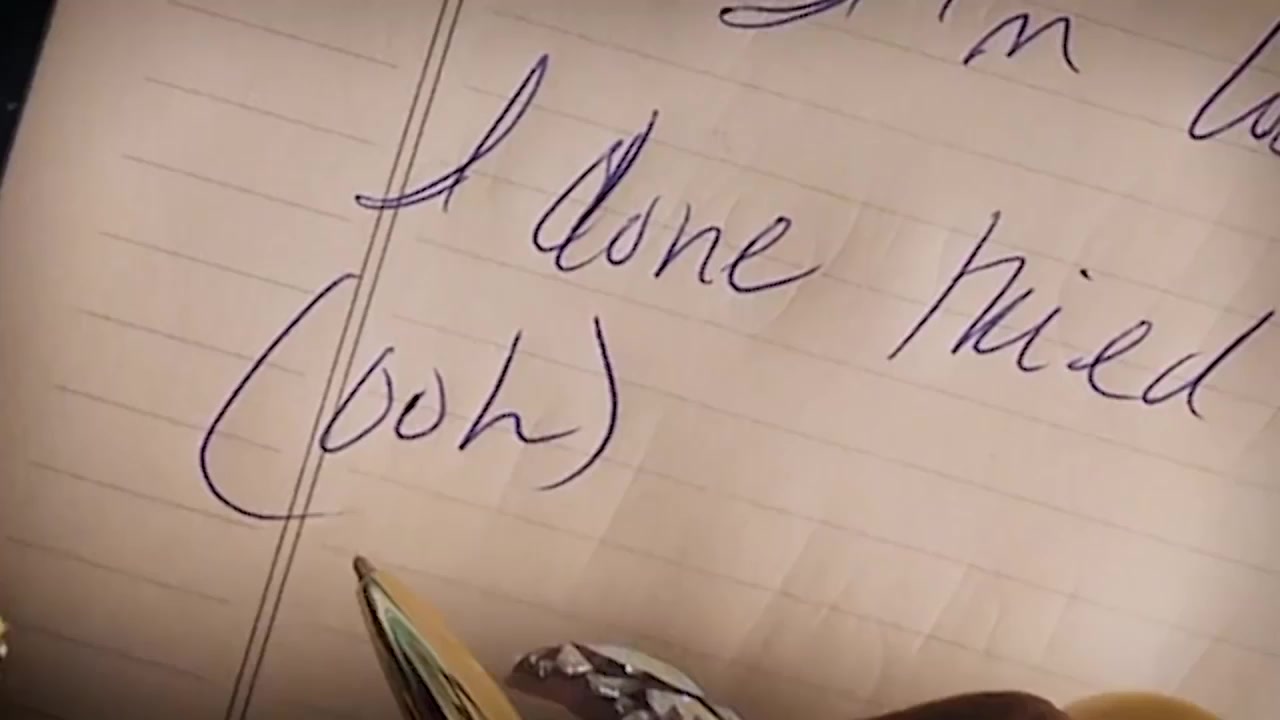 I'm
I done tried
(ooh)